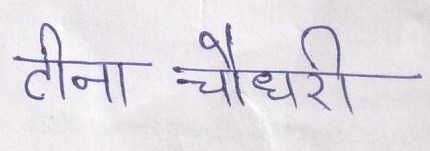 टीना चौधरी